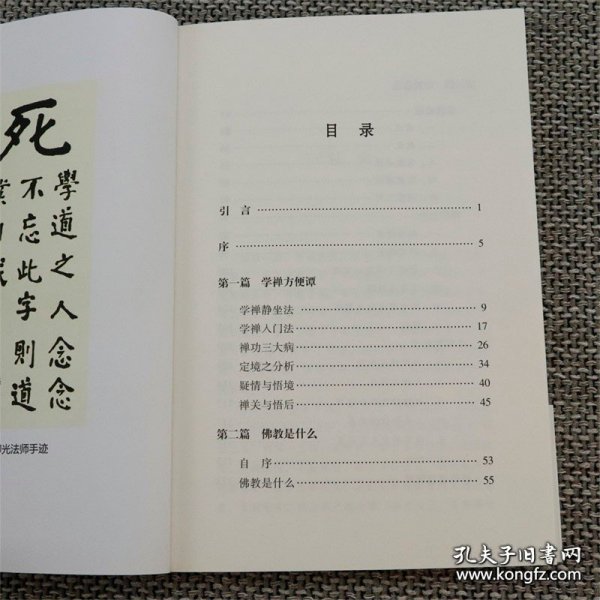 死
學道之人念念
不忘此字則道
業
光法师手迹
目录
引言 1
序 5
第一篇 学禅方便谭
学禅静坐法 9
学禅入门法 17
禅功三大病 26
定境之分析 34
疑情与悟境 40
禅关与悟后 45
第二篇 佛教是什么
自序 53
佛教是什么 55
孔夫子旧书网
www.kongfz.com